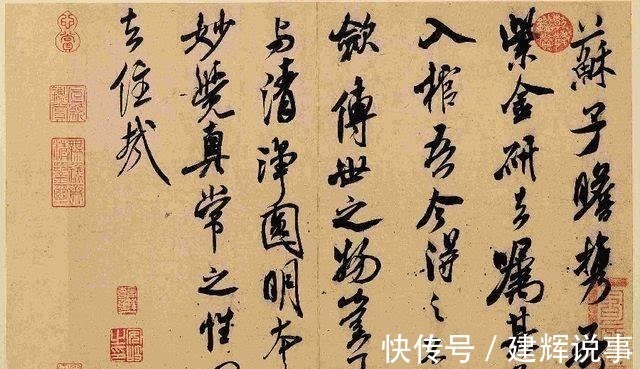 蘇子瞻携
紫金研去嘱其
入棺吾今得之
斂傳世之物豈
与清淨圓明本
妙覺真常之性
去住哉
快传号 / 建辉说事